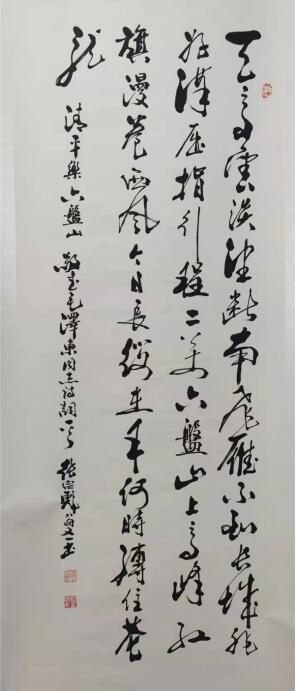 天高雲淡望斷南飛雁不到長城非
好漢屈指行程二萬六盤山上高峰紅
旗漫卷西風今日長纓在手何時縛住蒼
龍
清平樂六盤山 敬書毛澤東同志詩詞